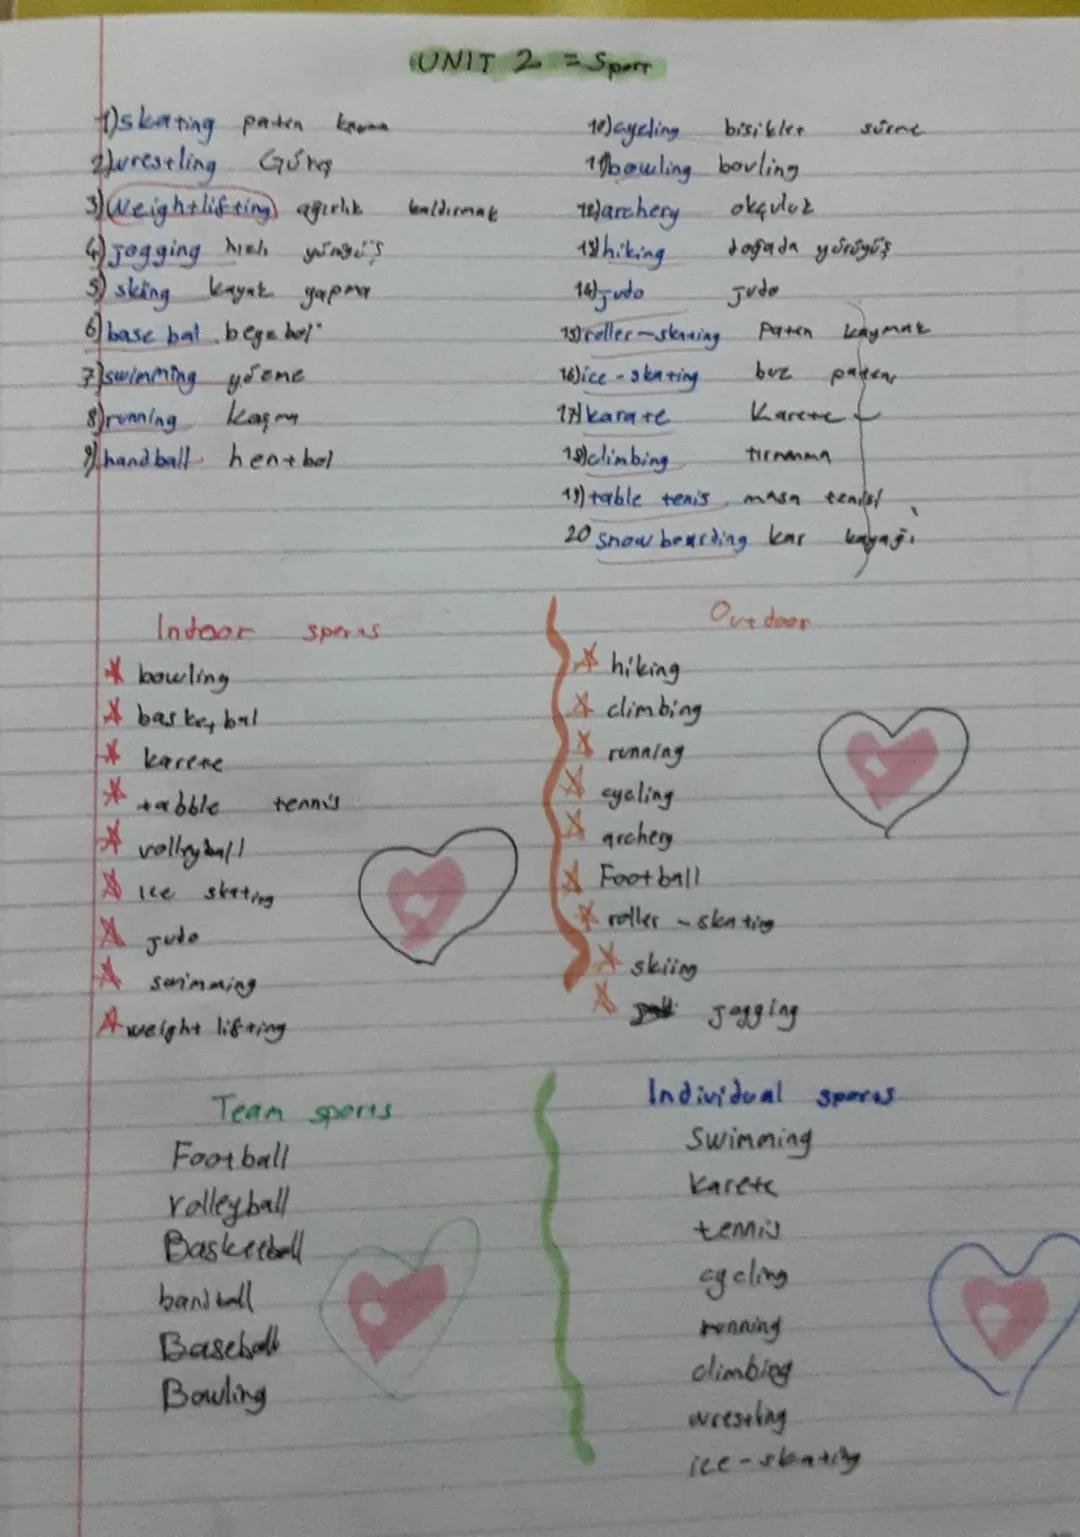 UNIT 2 = Sport
1) skating paten kayma
2) wrestling Güreş
3) Weightlifting ağırlık kaldırmak
4) jogging hızlı yürüyüş
5) skiing kayak yapma
6) base bal beyzbol
7) swimming yüzme
8) running koşma
9) handball hentbol
10) cycling bisiklet sürme
11) bowling bovling
12) archery okçuluk
13) hiking doğada yürüyüş
14) judo judo
15) roller-skating paten kaymak
16) ice-skating buz pateni
17) karate Karete
18) climbing tırmanma
19) table tenis masa tenisi
20 snowboarding kar kayağı
Indoor sports
bowling
basketbal
karete
tabble tennis
volleyball
ice skating
judo
swimming
weight lifting
Outdoor
hiking
climbing
running
cycling
archery
Football
roller-skating
skiing
jogging
Team sports
Football
volleyball
Basketball
handball
Baseball
Bowling
Individual sports
Swimming
karete
tennis
cycling
running
climbing
wrestling
ice-skating